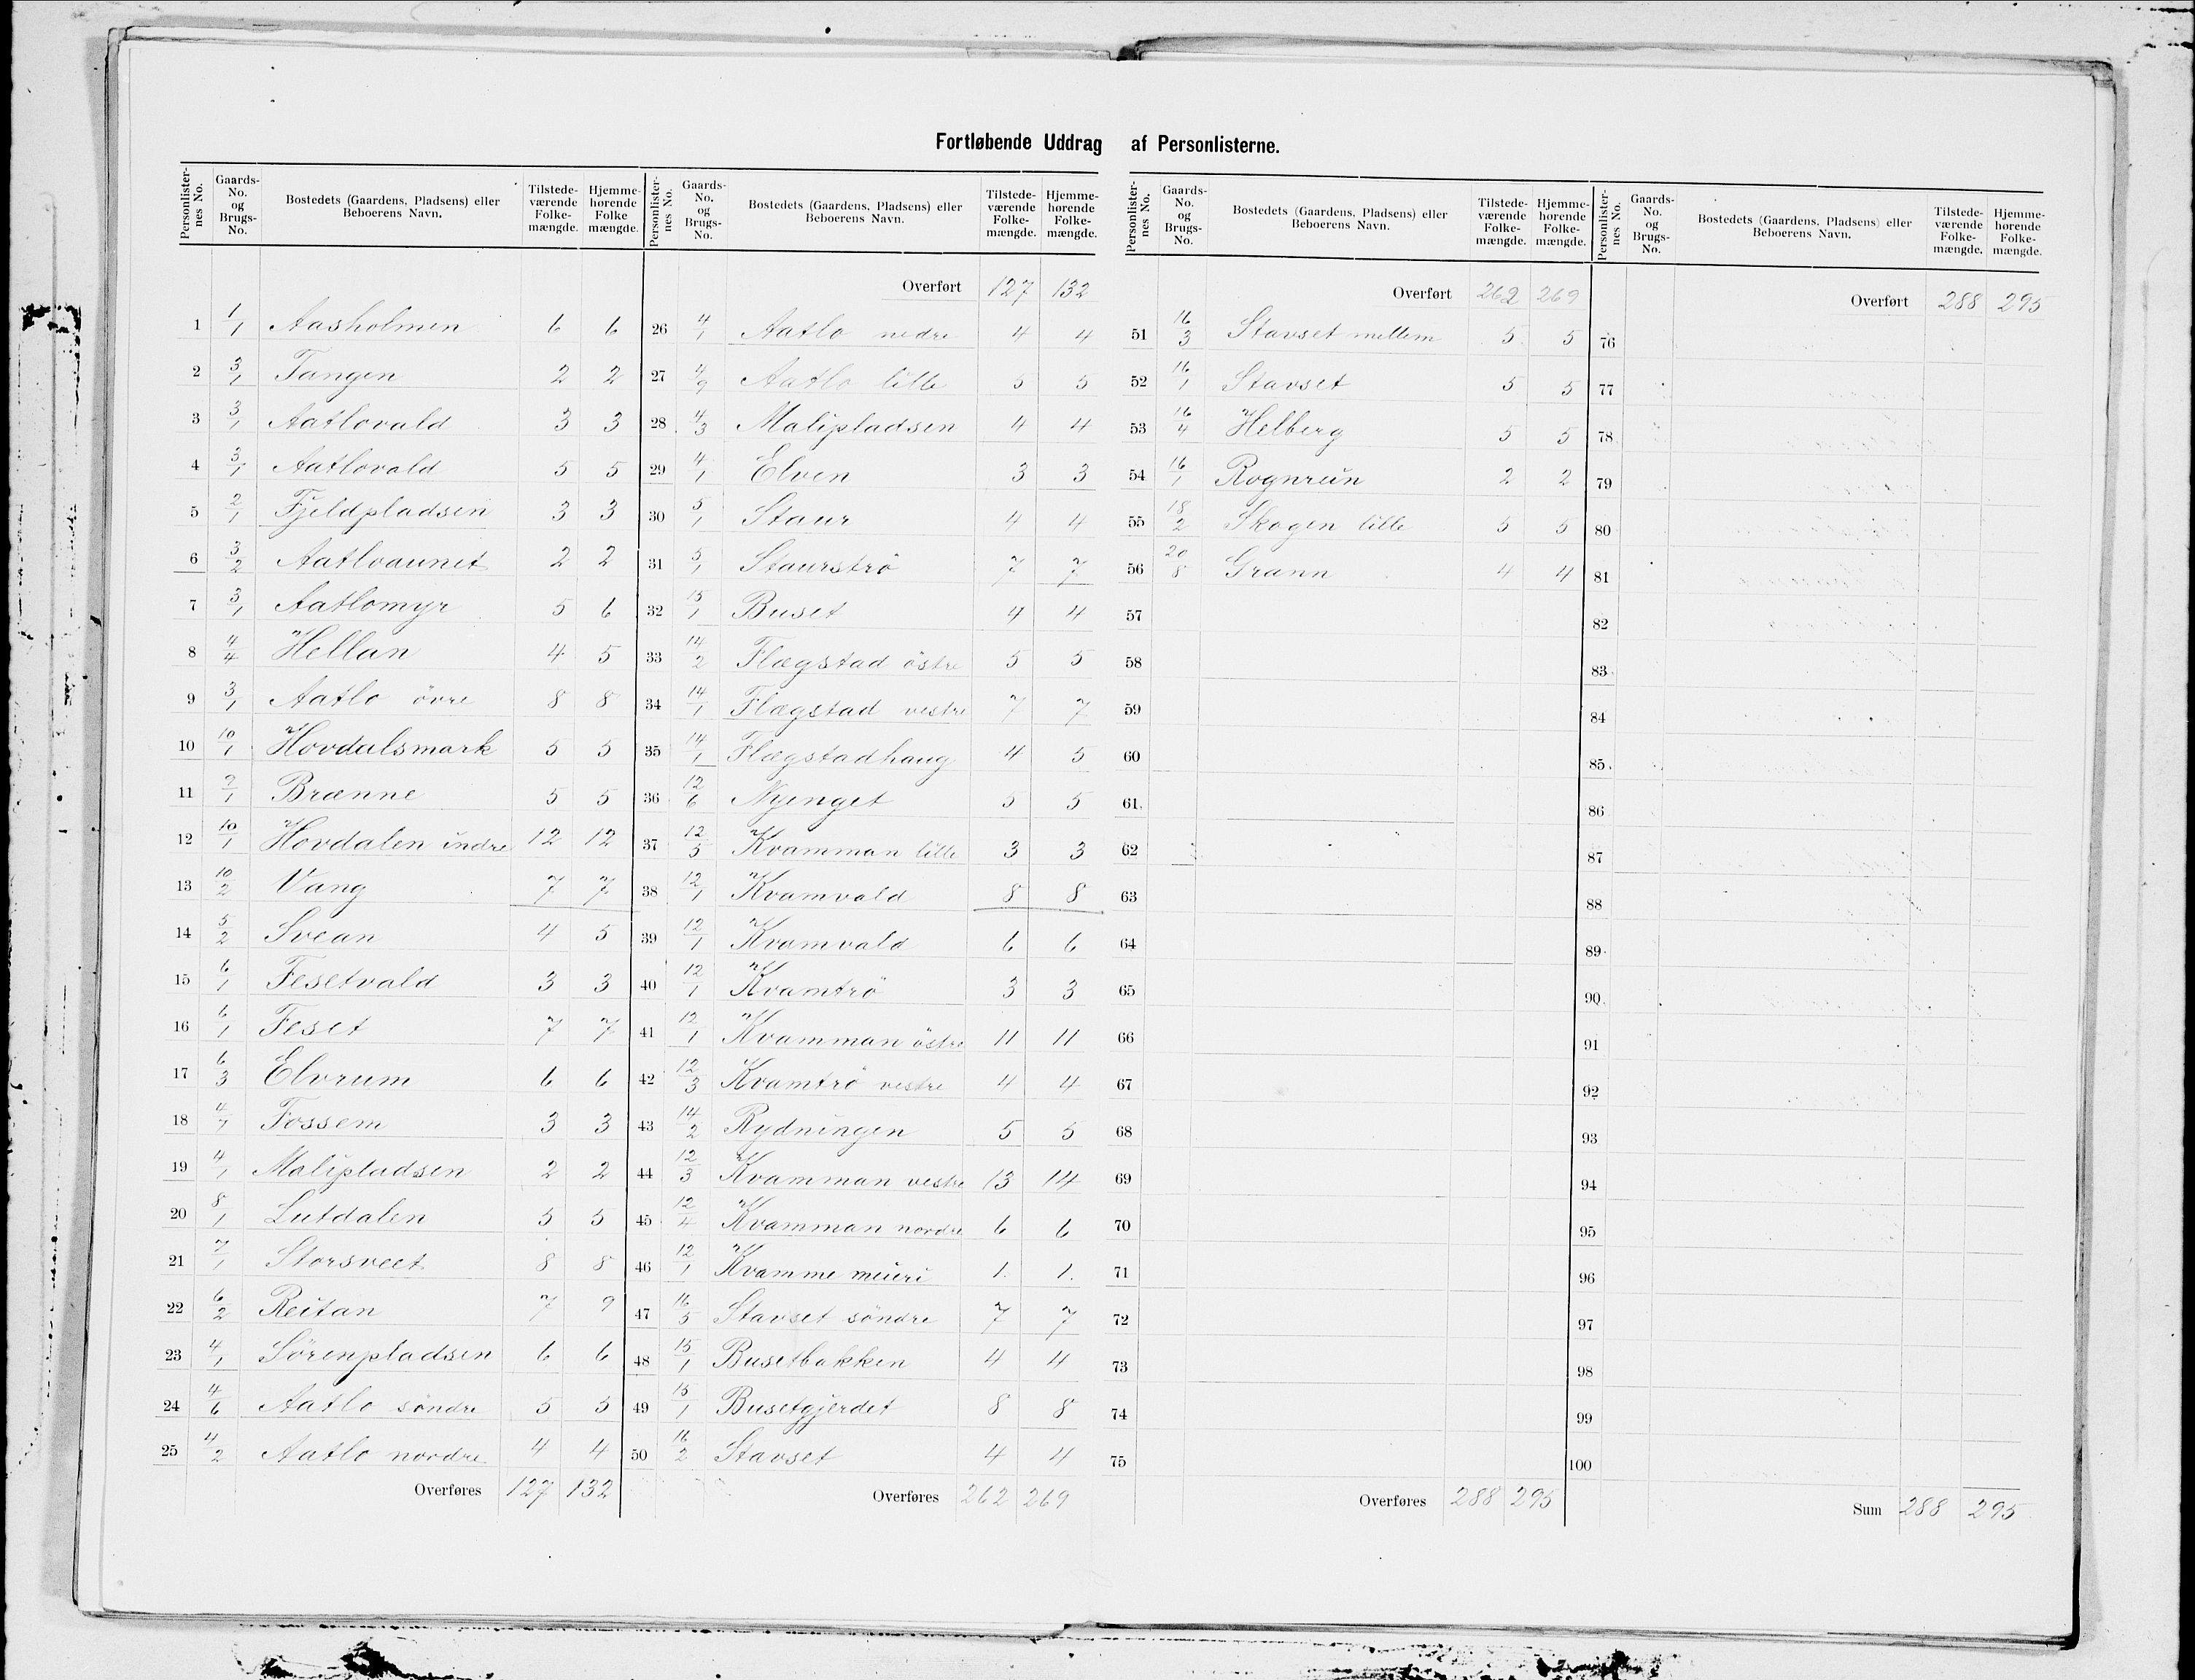 Fortløbende Uddrag af Personlisterne.
Personlisternes No. Gaards-No. og Brugs-No. Bostedets (Gaardens, Pladsens) eller Beboerens Navn. Tilstedeværende Folkemængde. Hjemmehørende Folkemængde.
1 1/1 Aasholmen 6 6
2 3/1 Tangen 2 2
3 3/1 Aatlovald 3 3
4 3/1 Aatlovald 5 5
5 2/1 Fjeldpladsen 3 3
6 3/2 Aatloaunet 2 2
7 3/1 Aatlomyr 5 6
8 4/4 Hellan 4 5
9 3/1 Aatlo övre 8 8
10 10/1 Hovdalsmark 5 5
11 7/1 Brænne 5 5
12 10/1 Hovdalen indre 12 12
13 10/2 Vang 7 7
14 5/2 Svean 4 5
15 6/1 Fesetvald 3 3
16 6/1 Feset 7 7
17 6/3 Elvrum 6 6
18 4/7 Fossem 3 3
19 4/1 Malipladsen 2 2
20 8/1 Lutdalen 5 5
21 7/1 Storsveet 8 8
22 6/2 Reitan 7 9
23 4/1 Sörenpladsen 6 6
24 4/6 Aatlo söndre 5 5
25 4/2 Aatlo nordre 4 4
Overføres 127 132
Personlisternes No. Gaards-No. og Brugs-No. Bostedets (Gaardens, Pladsens) eller Beboerens Navn. Tilstedeværende Folkemængde. Hjemmehørende Folkemængde.
Overført 127 132
26 4/1 Aatlo nedre 4 4
27 4/9 Aatlo lille 5 5
28 4/3 Malipladsen 4 4
29 4/1 Elven 3 3
30 5/1 Staur 4 4
31 5/1 Staurströ 7 7
32 15/1 Buset 4 4
33 14/2 Flægstad östre 5 5
34 14/1 Flægstad vestre 7 7
35 14/1 Flægstadhaug 4 5
36 12/6 Nyenget 5 5
37 12/5 Kvamman lille 3 3
38 12/1 Kvamvald 8 8
39 12/1 Kvamvald 6 6
40 12/1 Kvamtrö 3 3
41 12/1 Kvamman östre 11 11
42 12/3 Kvamtrö vestre 4 4
43 14/2 Rydningen 5 5
44 12/3 Kvamman vestre 13 14
45 12/4 Kvamman nordre 6 6
46 12/1 Kvamme meieri 1. 1.
47 16/5 Stavset söndre 7 7
48 15/1 Busetbakken 4 4
49 15/1 Busetgjerdet 8 8
50 16/2 Stavset 4 4
Overføres 262 269
Personlisternes No. Gaards-No. og Brugs-No. Bostedets (Gaardens, Pladsens) eller Beboerens Navn. Tilstedeværende Folkemængde. Hjemmehørende Folkemængde.
Overført 262 269
51 16/3 Stavset mellem 5 5
52 16/1 Stavset 5 5
53 16/4 Helberg 5 5
54 16/1 Rognreün 2 2
55 18/2 Skogen lille 5 5
56 20/8 Grann 4 4
57
58
59
60
61
62
63
64
65
66
67
68
69
70
71
72
73
74
75
Overføres 288 295
Personlisternes No. Gaards-No. og Brugs-No. Bostedets (Gaardens, Pladsens) eller Beboerens Navn. Tilstedeværende Folkemængde. Hjemmehørende Folkemængde.
Overført 288 295
76
77
78
79
80
81
82
83
84
85
86
87
88
89
90
91
92
93
94
95
96
97
98
99
100
Sum 288 295